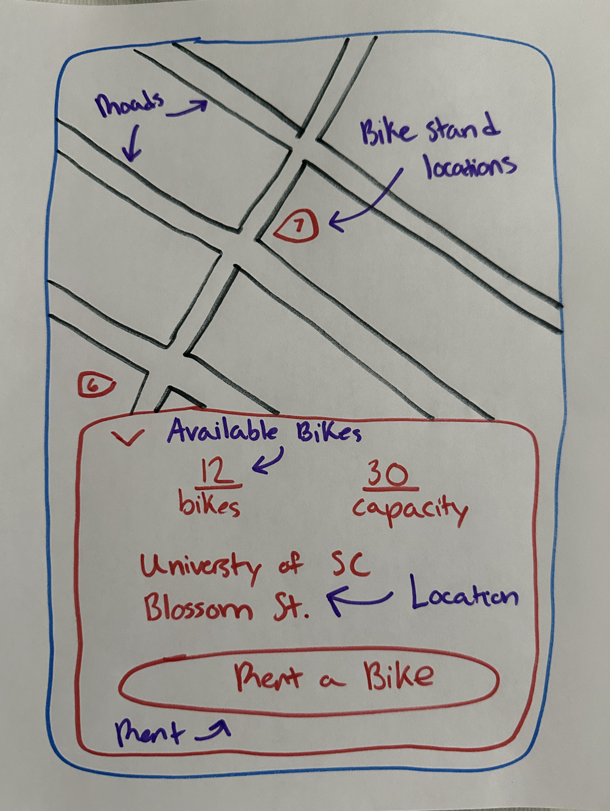 Roads
Bike stand
locations
7
6
Available Bikes
12
bikes
30
capacity
Universty of SC
Blossom St.
Location
Rent a Bike
Rent